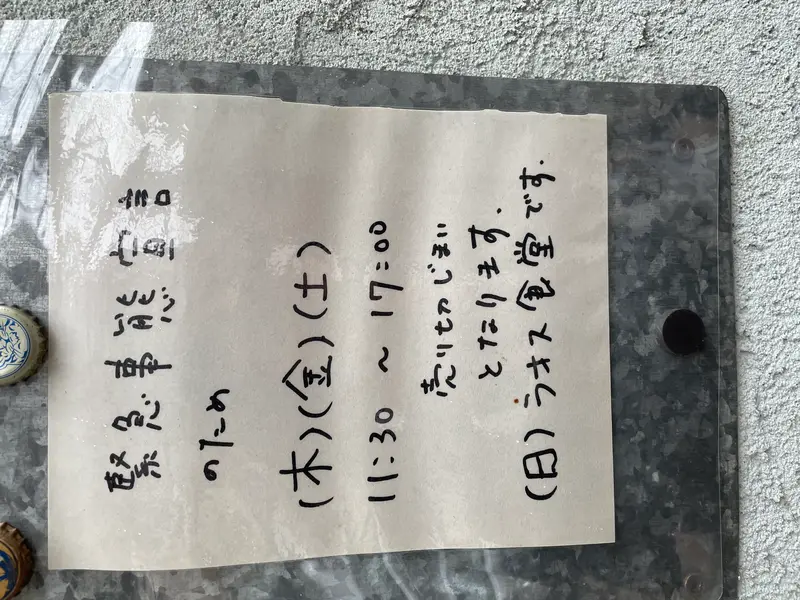 緊急事態宣言
のため
(木)(金)(土)
11:30 ～ 17:00
売り切れじまい
となります.
(日)ラオス食堂です.